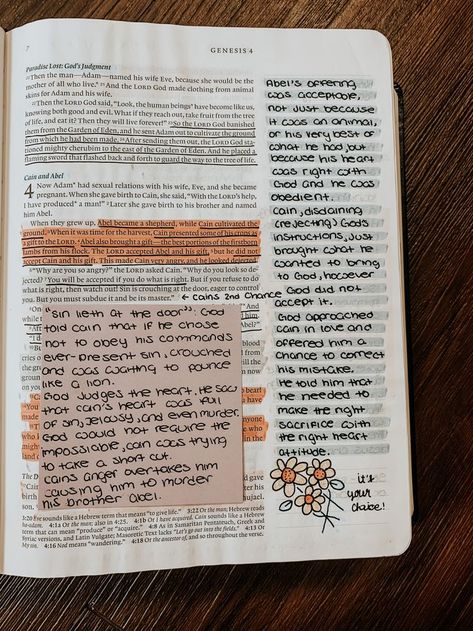 7
GENESIS 4
Paradise Lost: God's Judgment
20 Then the man—Adam—named his wife Eve, because she would be the
mother of all who live.* 21 And the LORD God made clothing from animal
skins for Adam and his wife.
22 Then the LORD God said, "Look, the human beings* have become like us,
knowing both good and evil. What if they reach out, take fruit from the tree
of life, and eat it? Then they will live forever!" 23 So the LORD God banished
them from the Garden of Eden, and he sent Adam out to cultivate the ground
from which he had been made. 24 After sending them out, the LORD God sta-
tioned mighty cherubim to the east of the Garden of Eden. And he placed a
flaming sword that flashed back and forth to guard the way to the tree of life.
Cain and Abel
4 Now Adam* had sexual relations with his wife, Eve, and she became
pregnant. When she gave birth to Cain, she said, "With the LORD's help,
I have produced* a man!" 2 Later she gave birth to his brother and named
him Abel.
When they grew up, Abel became a shepherd, while Cain cultivated the
ground. 3 When it was time for the harvest, Cain presented some of his crops as
a gift to the LORD. 4 Abel also brought a gift—the best portions of the firstborn
lambs from his flock. The LORD accepted Abel and his gift, 5 but he did not
accept Cain and his gift. This made Cain very angry, and he looked dejected.
6 "Why are you so angry?" the LORD asked Cain. "Why do you look so de-
jected? 7 You will be accepted if you do what is right. But if you refuse to do
what is right, then watch out! Sin is crouching at the door, eager to control
you. But you must subdue it and be its master."
← Cains 2nd Chance
"Sin lieth at the door": God
told cain that if he chose
not to obey his commands
ever-present sin, crouched
and was waiting to pounce
like a lion.
God judges the heart, He saw
that cain's heart was full
of sin, jelousy, and even murder.
God would not require the
impossiable, cain was trying
to take a short cut.
cains anger overtakes him
causing him to murder
his brother Abel.
Abel's offering
was acceptable,
not just because
it was an animal,
or his very best of
what he had, but
because his heart
was right with
God and he was
obedient.
cain, disdaining
(rejecting) God's
instructions, just
brought what he
wanted to bring
to God, however
God did not
accept it.
God approached
cain in love and
offered him a
chance to correct
his mistake.
He told him that
he needed to
make the right
sacrifice with
the right heart
attitude.
it's
your
choice!
3:20 Eve sounds like a Hebrew term that means "to give life." 3:22 Or the man; Hebrew reads
4:1a Or the man; also in 4:25. 4:1b Or I have acquired. Cain sounds like a Hebrew
term that can mean "produce" or "acquire." 4:8 As in Samaritan Pentateuch, Greek and
Syriac versions, and Latin Vulgate; Masoretic Text lacks "Let's go out into the fields." 4:13 Or
My sin. 4:16 Nod means "wandering." 4:18 Or the ancestor of, and so throughout the verse.